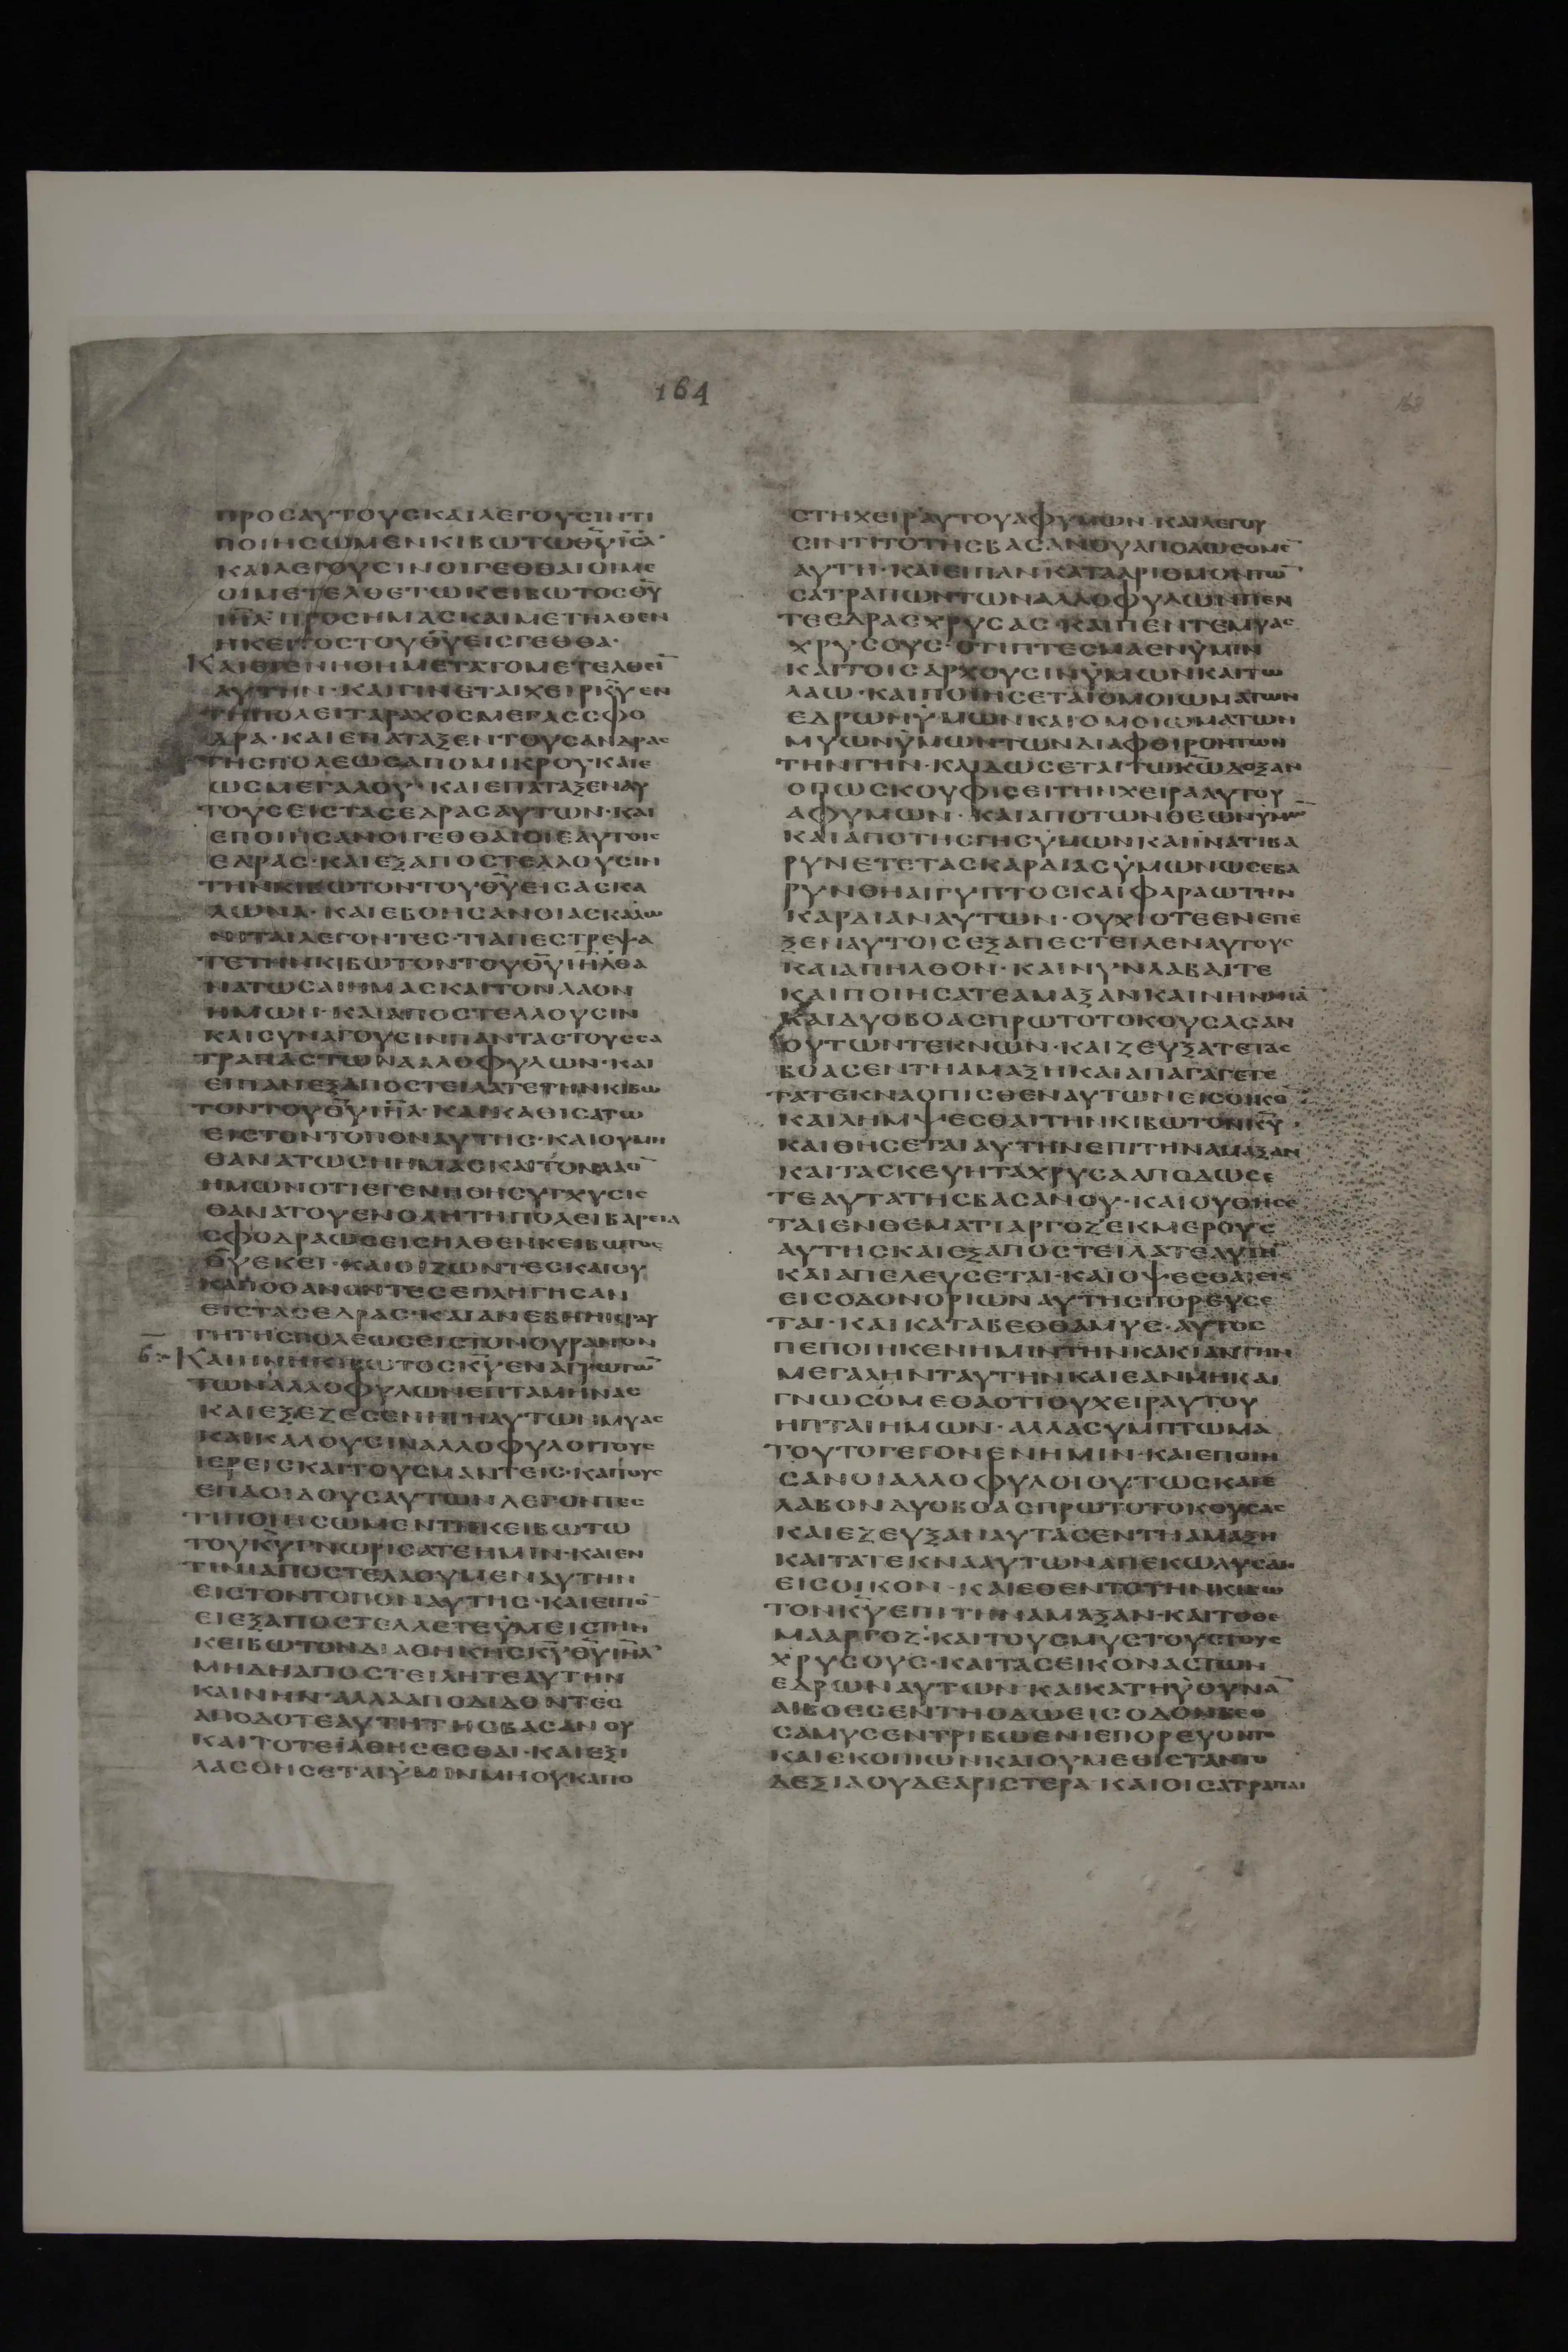 164
168
ΠΡΟCΑΥΤΟΥCΚΑΙΛΕΓΟΥCΙΝΤΙ
ΠΟΙΗCΩΜΕΝΚΙΒΩΤΩΘ̅Υ̅Ι̅C̅Λ̅·
ΚΑΙΛΕΓΟΥCΙΝΟΙΓΕΘΘΑΙΟΙΜΕ
ΟΙΜΕΤΕΛΘΕΤΩΚΕΙΒΩΤΟCΘ̅Υ̅
Ι̅Η̅Λ̅ ΠΡΟCΗΜΑCΚΑΙΜΕΤΗΛΘΕΝ
ΗΚΕΙΒΟCΤΟΥΘ̅Υ̅ΕΙCΓΕΘΘΑ·
ΚΑΙΕΓΕΝΗΘΗΜΕΤΑΤΟΜΕΤΕΛΘΕΙ̅
ΑΥΤΗΝ·ΚΑΙΓΙΝΕΤΑΙΧΕΙΡΚ̅Υ̅ΕΝ
ΤΗΠΟΛΕΙΤΑΡΑΧΟCΜΕΓΑCCΦΟ
ΔΡΑ·ΚΑΙΕΠΑΤΑΞΕΝΤΟΥCΑΝΔΡΑC
ΤΗCΠΟΛΕΩCΑΠΟΜΙΚΡΟΥΚΑΙΕ
ΩCΜΕΓΑΛΟΥ·ΚΑΙΕΠΑΤΑΞΕΝΑΥ
ΤΟΥCΕΙCΤΑCΕΔΡΑCΑΥΤΩΝ·ΚΑΙ
ΕΠΟΙΗCΑΝΟΙΓΕΘΘΑΙΟΙΕΑΥΤΟΙC
ΕΔΡΑC·ΚΑΙΕΞΑΠΟCΤΕΛΛΟΥCΙΝ
ΤΗΝΚΙΒΩΤΟΝΤΟΥΘ̅Υ̅ΕΙCΑCΚΑ
ΛΩΝΑ·ΚΑΙΕΒΟΗCΑΝΟΙΑCΚΑΛΩ
ΝΕΙΤΑΙΛΕΓΟΝΤΕC·ΤΙΑΠΕCΤΡΕΨΑ
ΤΕΤΗΝΚΙΒΩΤΟΝΤΟΥΘ̅Υ̅Ι̅Η̅Λ̅ΘΑ
ΝΑΤΩCΑΙΗΜΑCΚΑΙΤΟΝΛΑΟΝ
ΗΜΩΝ·ΚΑΙΑΠΟCΤΕΛΛΟΥCΙΝ
ΚΑΙCΥΝΑΓΟΥCΙΝΠΑΝΤΑCΤΟΥCCΑ
ΤΡΑΠΑCΤΩΝΑΛΛΟΦΥΛΩΝ·ΚΑΙ
ΕΙΠΑΝΕΞΑΠΟCΤΕΙΛΑΤΕΤΗΝΚΙΒΩ
ΤΟΝΤΟΥΘ̅Υ̅Ι̅Η̅Λ̅·ΚΑΙΚΑΘΙCΑΤΩ
ΕΙCΤΟΝΤΟΠΟΝΑΥΤΗC·ΚΑΙΟΥΜΗ
ΘΑΝΑΤΩCΗΗΜΑCΚΑΙΤΟΝΛΑΟ̅
ΗΜΩΝΟΤΙΕΓΕΝΗΘΗCΥΓΧΥCΙC
ΘΑΝΑΤΟΥΕΝΟΛΗΤΗΠΟΛΕΙΒΑΡΕΙΑ
CΦΟΔΡΑΩCΕΙCΗΛΘΕΝΚΕΙΒΩΤΟC
Θ̅Υ̅ΕΚΕΙ·ΚΑΙΟΙΖΩΝΤΕCΚΑΙΟΥ
ΚΑΠΟΘΑΝΟΝΤΕCΕΠΛΗΓΗCΑΝ
ΕΙCΤΑCΕΔΡΑC·ΚΑΙΑΝΕΒΗΗΚΡΑΥ
ΓΗΤΗCΠΟΛΕΩCΕΙCΤΟΝΟΥΡΑΝΟΝ
ϛ̅ ΚΑΙΗΝΗΚΙΒΩΤΟCΚ̅Υ̅ΕΝΑΓΡΩΤΩ̅
ΤΩΝΑΛΛΟΦΥΛΩΝΕΠΤΑΜΗΝΑC
ΚΑΙΕΞΕΖΕCΕΝΗΓΗΑΥΤΩΝΜΥΑC
ΚΑΙΚΑΛΟΥCΙΝΑΛΛΟΦΥΛΟΙΤΟΥC
ΙΕΡΕΙCΚΑΙΤΟΥCΜΑΝΤΕΙC·ΚΑΙΤΟΥC
ΕΠΑΟΙΔΟΥCΑΥΤΩΝΛΕΓΟΝΤΕC
ΤΙΠΟΙΗCΩΜΕΝΤΗΚΕΙΒΩΤΩ
ΤΟΥΚ̅Υ̅ΓΝΩΡΙCΑΤΕΗΜΙΝ·ΚΑΙΕΝ
ΤΙΝΙΑΠΟCΤΕΛΛΟΥΜΕΝΑΥΤΗΝ
ΕΙCΤΟΝΤΟΠΟΝΑΥΤΗC·ΚΑΙΕΙΠΟ̅
ΕΙΕΞΑΠΟCΤΕΛΛΕΤΕΥΜΕΙCΤΗΝ
ΚΕΙΒΩΤΟΝΔΙΑΘΗΚΗCΚ̅Υ̅Θ̅Υ̅Ι̅Η̅Λ̅
ΜΗΔΗΑΠΟCΤΕΙΛΗΤΕΑΥΤΗΝ
ΚΑΙΝΗΝ·ΑΛΛΑΑΠΟΔΙΔΟΝΤΕC
ΑΠΟΔΟΤΕΑΥΤΗΤΗCΒΑCΑΝΟΥ
ΚΑΙΤΟΤΕΙΑΘΗCΕCΘΑΙ·ΚΑΙΕΞΙ
ΛΑCΘΗCΕΤΑΙΥΜΙΝΜΗΟΥΚΑΠΟ
CΤΗΧΕΙΡΑΥΤΟΥΑΦΥΜΩΝ·ΚΑΙΛΕΓΟΥ
CΙΝΤΙΤΟΤΗCΒΑCΑΝΟΥΑΠΟΔΩCΟΜΕ̅
ΑΥΤΗ·ΚΑΙΕΙΠΑΝΚΑΤΑΑΡΙΘΜΟΝΤΩ̅
CΑΤΡΑΠΩΝΤΩΝΑΛΛΟΦΥΛΩΝΠΕΝ
ΤΕΕΔΡΑCΧΡΥCΑC·ΚΑΙΠΕΝΤΕΜΥΑC
ΧΡΥCΟΥC·ΟΤΙΠΤΕCΜΑΕΝΥΜΙΝ
ΚΑΙΤΟΙCΑΡΧΟΥCΙΝΥΜΩΝΚΑΙΤΩ
ΛΑΩ·ΚΑΙΠΟΙΗCΕΤΑΙΟΜΟΙΩΜΑΤΩΝ
ΕΔΡΩΝΥΜΩΝΚΑΙΟΜΟΙΩΜΑΤΩΝ
ΜΥΩΝΥΜΩΝΤΩΝΔΙΑΦΘΙΡΟΝΤΩΝ
ΤΗΝΓΗΝ·ΚΑΙΔΩCΕΤΑΙΤΩΚ̅Ω̅ΔΟΞΑΝ
ΟΠΩCΚΟΥΦΙCΕΙΤΗΝΧΕΙΡΑΑΥΤΟΥ
ΑΦΥΜΩΝ·ΚΑΙΑΠΟΤΩΝΘΕΩΝΥΜΩ̅
ΚΑΙΑΠΟΤΗCΓΗCΥΜΩΝΚΑΙΙΝΑΤΙΒΑ
ΡΥΝΕΤΕΤΑCΚΑΡΔΙΑCΥΜΩΝΩCΕΒΑ
ΡΥΝΘΗΑΙΓΥΠΤΟCΚΑΙΦΑΡΑΩΤΗΝ
ΚΑΡΔΙΑΝΑΥΤΩΝ·ΟΥΧΙΟΤΕΕΝΕΠΕ
ΞΕΝΑΥΤΟΙCΕΞΑΠΕCΤΕΙΛΕΝΑΥΤΟΥC
ΚΑΙΑΠΗΛΘΟΝ·ΚΑΙΝΥΝΛΑΒΑΙΤΕ
ΚΑΙΠΟΙΗCΑΤΕΑΜΑΞΑΝΚΑΙΝΗΝΜΙΑ̅
ΚΑΙΔΥΟΒΟΑCΠΡΩΤΟΤΟΚΟΥCΑCΑΝ
ΟΥΤΩΝΤΕΚΝΩΝ·ΚΑΙΖΕΥΞΑΤΕΤΑC
ΒΟΑCΕΝΤΗΑΜΑΞΗΚΑΙΑΠΑΓΑΓΕΤΕ
ΤΑΤΕΚΝΑΟΠΙCΘΕΝΑΥΤΩΝΕΙCΟΙΚΟ̅
ΚΑΙΛΗΜΨΕCΘΑΙΤΗΝΚΙΒΩΤΟΝΚ̅Υ̅·
ΚΑΙΘΗCΕΤΑΙΑΥΤΗΝΕΠΙΤΗΝΑΜΑΞΑΝ
ΚΑΙΤΑCΚΕΥΗΤΑΧΡΥCΑΑΠΟΔΩCΕ
ΤΕΑΥΤΑΤΗCΒΑCΑΝΟΥ·ΚΑΙΟΥΘΗCΕ
ΤΑΙΕΝΘΕΜΑΤΙΑΡΓΟΖΕΚΜΕΡΟΥC
ΑΥΤΗCΚΑΙΕΞΑΠΟCΤΕΙΛΑΤΕΑΥΤΗ̅
ΚΑΙΑΠΕΛΕΥCΕΤΑΙ·ΚΑΙΟΨΕCΘΑΙΕΙC
ΕΙCΟΔΟΝΟΡΙΩΝΑΥΤΗCΠΟΡΕΥCΕ
ΤΑΙ·ΚΑΙΚΑΤΑΒΕΘΘΑΜΥC·ΑΥΤΟC
ΠΕΠΟΙΗΚΕΝΗΜΙΝΤΗΝΚΑΚΙΑΝΤΗΝ
ΜΕΓΑΛΗΝΤΑΥΤΗΝΚΑΙΕΑΝΜΗΚΑΙ
ΓΝΩCΟΜΕΘΑΟΤΙΟΥΧΕΙΡΑΥΤΟΥ
ΗΠΤΑΙΗΜΩΝ·ΑΛΛΑCΥΜΠΤΩΜΑ
ΤΟΥΤΟΓΕΓΟΝΕΝΗΜΙΝ·ΚΑΙΕΠΟΙΗ
CΑΝΟΙΑΛΛΟΦΥΛΟΙΟΥΤΩCΚΑΙΕ
ΛΑΒΟΝΔΥΟΒΟΑCΠΡΩΤΟΤΟΚΟΥCΑC
ΚΑΙΕΖΕΥΞΑΝΑΥΤΑCΕΝΤΗΑΜΑΞΗ
ΚΑΙΤΑΤΕΚΝΑΑΥΤΩΝΑΠΕΚΩΛΥCΑΝ
ΕΙCΟΙΚΟΝ·ΚΑΙΕΘΕΝΤΟΤΗΝΚΙΒΩ
ΤΟΝΚ̅Υ̅ΕΠΙΤΗΝΑΜΑΞΑΝ·ΚΑΙΤΟΘΕ
ΜΑΑΡΓΟΖ·ΚΑΙΤΟΥCΜΥCΤΟΥCΤΟΥC
ΧΡΥCΟΥC·ΚΑΙΤΑCΕΙΚΟΝΑCΤΩΝ
ΕΔΡΩΝΑΥΤΩΝ·ΚΑΙΚΑΤΗΥΘΥΝΑ̅
ΑΙΒΟΕCΕΝΤΗΟΔΩΕΙCΟΔΟΝΒΕΘ
CΑΜΥCΕΝΤΡΙΒΩΕΝΙΕΠΟΡΕΥΟΝΤΟ
ΚΑΙΕΚΟΠΙΩΝΚΑΙΟΥΜΕΘΙCΤΑΝΤΟ
ΔΕΞΙΑΟΥΔΕΑΡΙCΤΕΡΑ·ΚΑΙΟΙCΑΤΡΑΠΑΙ